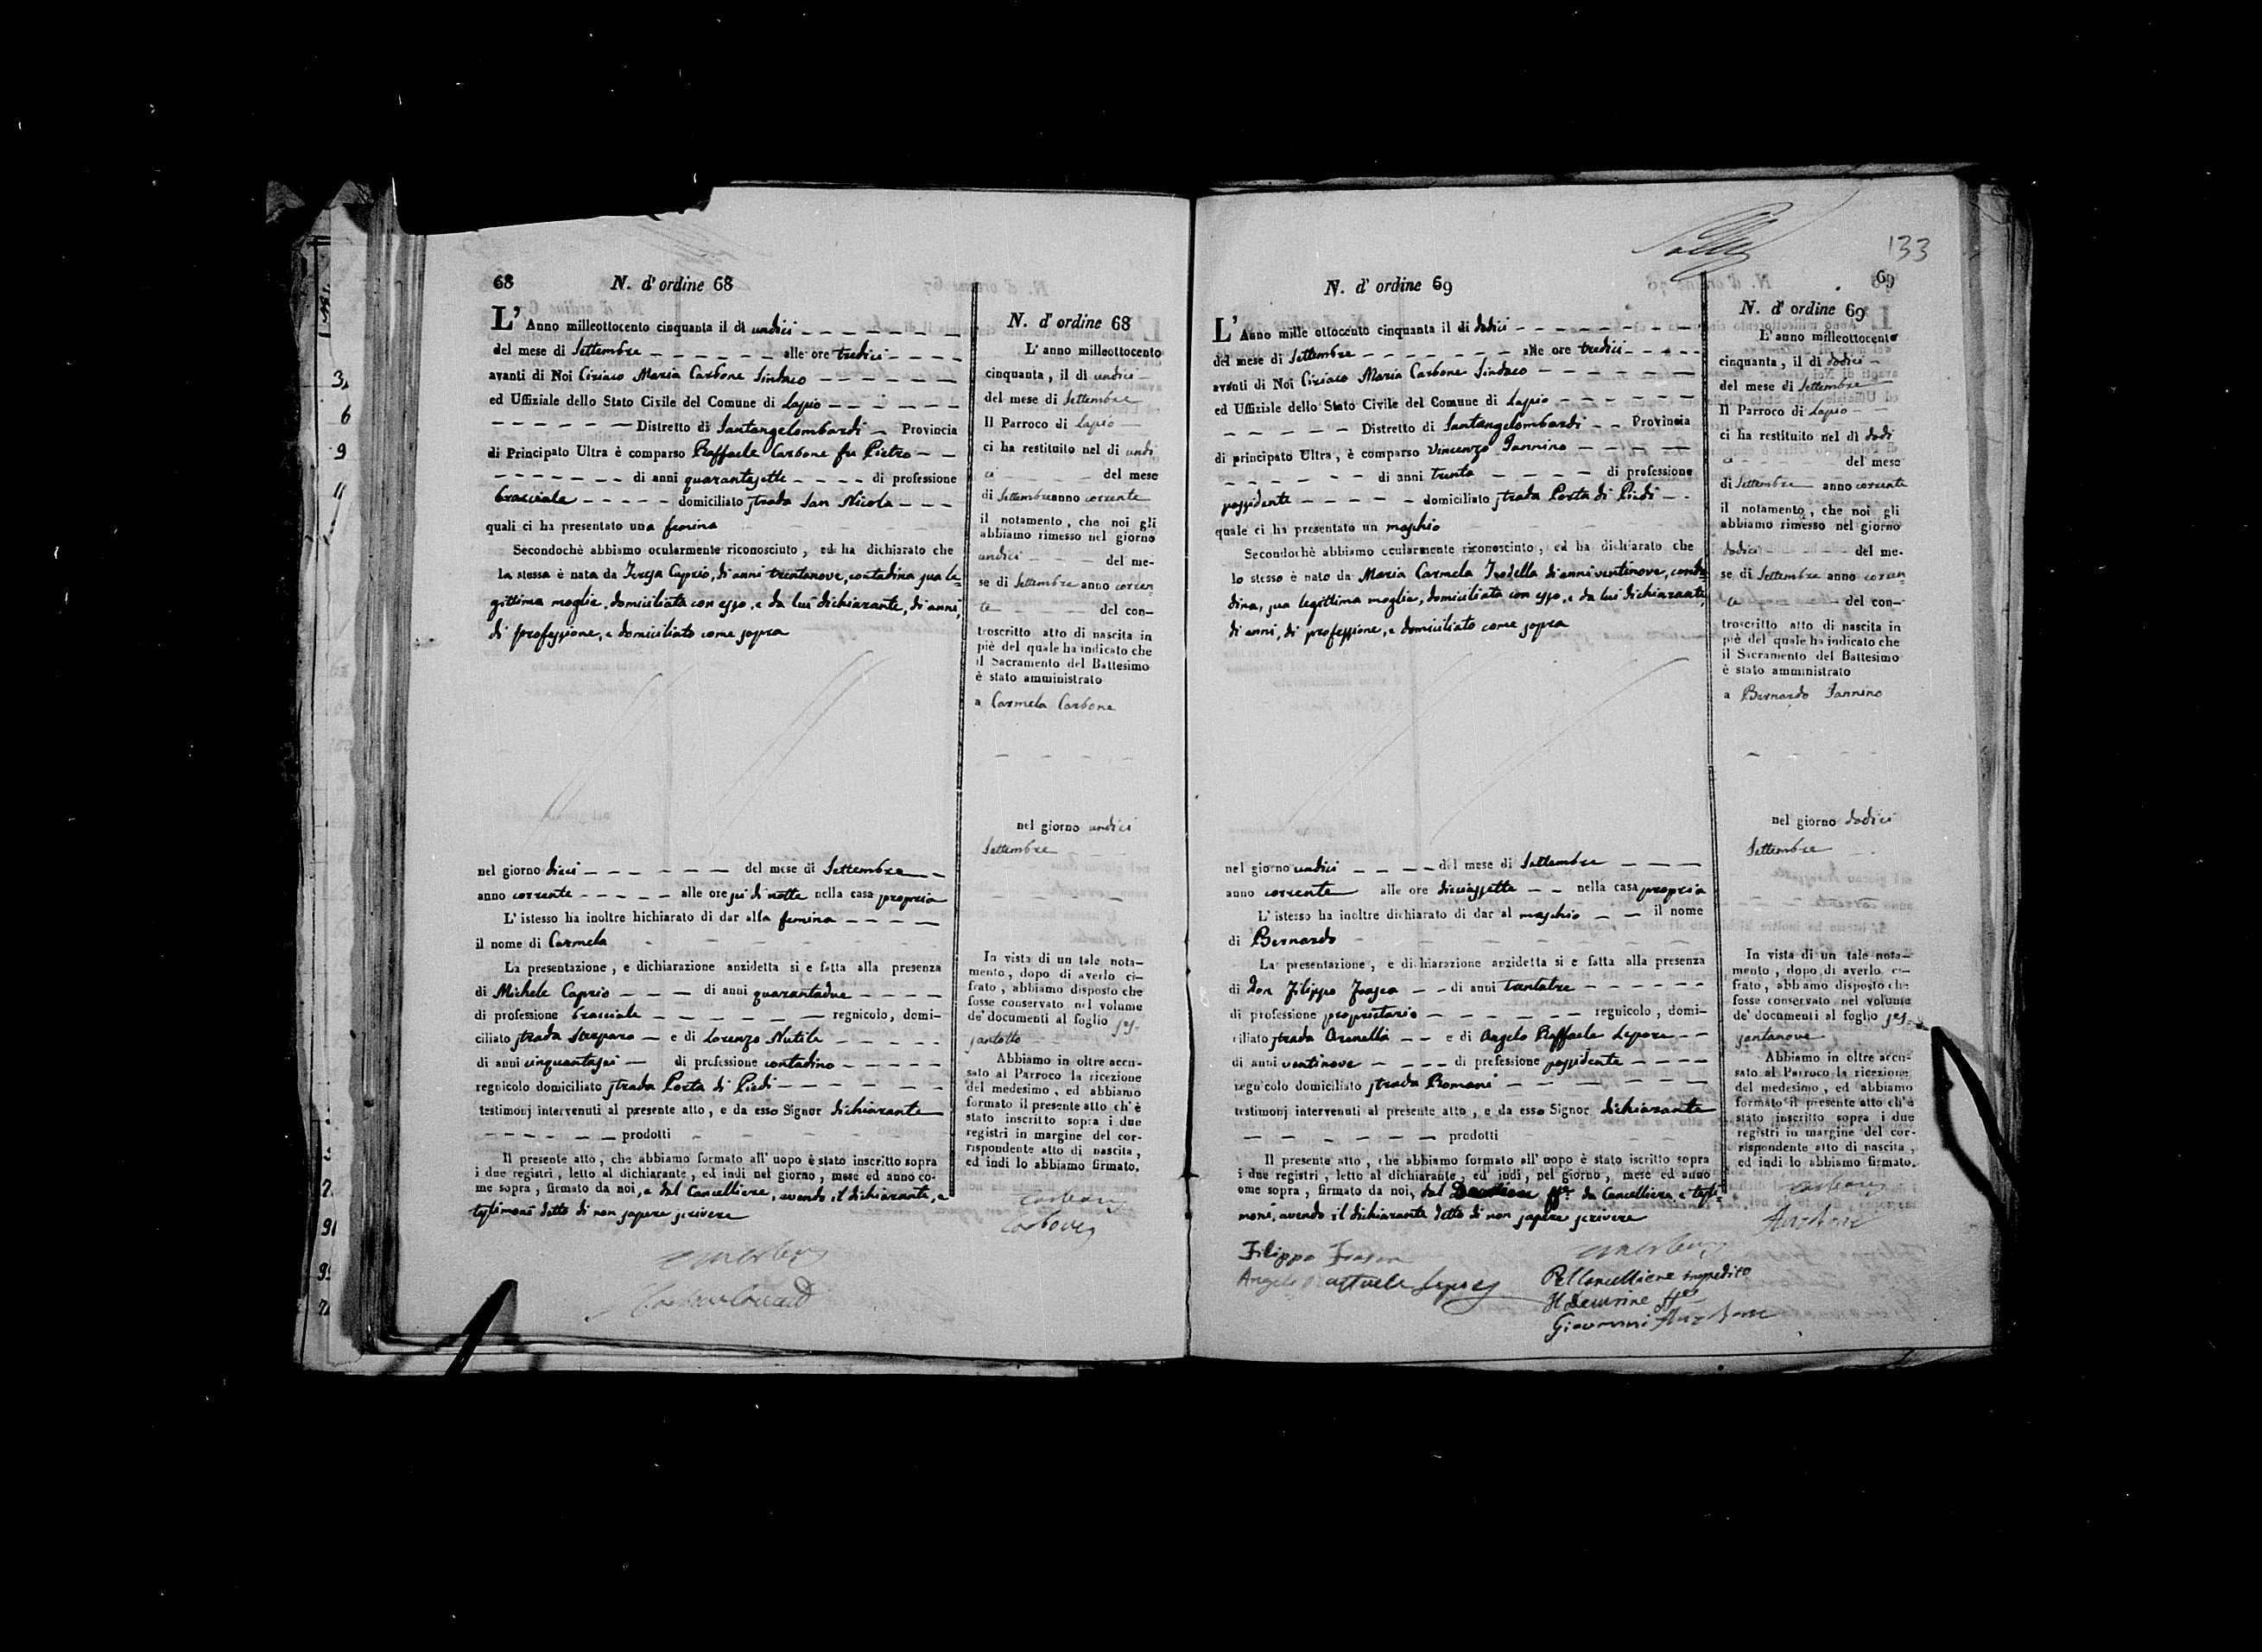 68 N. d' ordine 68
L' Anno milleottocento cinquanta il dì undici
del mese di Settembre alle ore tredici
avanti di Noi Ciriaco Maria Carbone Sindaco
ed Uffiziale dello Stato Civile del Comune di Lapio
Distretto di Santangelombardi Provincia
di Principato Ultra è comparso Raffaele Carbone fu Pietro
di anni quarantasette di professione
bracciale domiciliato strada San Nicola
quali ci ha presentato una femina
Secondochè abbiamo ocularmente riconosciuto, ed ha dichiarato che
la stessa è nata da Teresa Caprio, di anni trentanove, contadina sua le-
gittima moglie, domiciliata con esso, e da lui dichiarante, di anni,
di professione, e domiciliato come sopra
nel giorno dieci del mese di Settembre
anno corrente alle ore sei di notte nella casa propria
L' istesso ha inoltre hichiarato di dar alla femina
il nome di Carmela
La presentazione, e dichiarazione anzidetta si e fatta alla presenza
di Michele Caprio di anni quarantadue
di professione bracciale regnicolo, domi-
ciliato strada Sterparo e di Lorenzo Nutile
di anni cinquantasei di professione contadino
regnicolo domiciliato strada Porta di Piedi
testimonj intervenuti al presente atto, e da esso Signor dichiarante
prodotti
Il presente atto, che abbiamo formato all' uopo è stato inscritto sopra
i due registri, letto al dichiarante, ed indi nel giorno, mese ed anno co-
me sopra, firmato da noi, e dal Cancelliere, avendo il dichiarante, e
testimoni detto di non sapere scrivere
N. d' ordine 68
L' anno milleottocento
cinquanta, il dì undici
del mese di Settembre
Il Parroco di Lapio
ci ha restituito nel di undi
ci del mese
di Settembre anno corrente
il notamento, che noi gli
abbiamo rimesso nel giorno
undici del me-
se di Settembre anno corren
te del con-
troscritto atto di nascita in
piè del quale ha indicato che
il Sacramento del Battesimo
è stato amministrato
a Carmela Carbone
nel giorno undici
Settembre
In vista di un tale nota-
mento, dopo di averlo ci-
frato, abbiamo disposto che
fosse conservato nel volume
de' documenti al foglio ses-
santotto
Abbiamo in oltre accu-
sato al Parroco la ricezione
del medesimo, ed abbiamo
formato il presente atto ch' è
stato inscritto sopra i due
registri in margine del cor-
rispondente atto di nascita,
ed indi lo abbiamo firmato.
Carbone
133
N. d' ordine 69 69
L' Anno mille ottocento cinquanta il di dodici
del mese di Settembre alle ore tredici
avanti di Noi Ciriaco Maria Carbone Sindaco
ed Uffiziale dello Stato Civile del Comune di Lapio
Distretto di Santangelombardi Provincia
di principato Ultra, è comparso Vincenzo Iannino
di anni trenta di professione
possidente domiciliato strada Porta di Piedi
quale ci ha presentato un maschio
Secondochè abbiamo ocularmente riconosciuto, ed ha dichiarato che
lo stesso è nato da Maria Carmela di anni ventinove, conta-
dina, sua legittima moglie, domiciliata con esso, e da lui dichiarante,
di anni, di professione, e domiciliato come sopra
nel giorno undici del mese di Settembre
anno corrente alle ore diciassette nella casa propria
L' istesso ha inoltre dichiarato di dar al maschio il nome
di Bernardo
La presentazione, e dichiarazione anzidetta si e fatta alla presenza
di Don Filippo Frasca di anni trentatre
di professione proprietario regnicolo, domi-
ciliato strada Arenella e di Angelo Raffaele Lepore
di anni ventinove di prefessione possidente
regnicolo domiciliato strada Romani
testimonj intervenuti al presente atto, e da esso Signor dichiarante
prodotti
Il presente atto, che abbiamo formato all' uopo è stato iscritto sopra
i due registri, letto al dichiarante, ed indi, nel giorno, mese ed anno
ome sopra, firmato da noi, dal ff. da Cancelliere, e testi
moni, avendo il dichiarante detto di non sapere scrivere
Filippo Frasca
Angelo Raffaele Lepore
Pel Cancelliere impedito
Il Decurione ff
Giovanni
N. d' ordine 69
L' anno milleottocento
cinquanta, il di dodici
del mese di Settembre
Il Parroco di Lapio
ci ha restituito nel dì dodi
ci del mese
di Settembre anno corrente
il notamento, che noi gli
abbiamo rimesso nel giorno
dodici del me-
se di Settembre anno corren
te del con-
troscritto atto di nascita in
piè del quale ha indicato che
il Sacramento del Battesimo
è stato amministrato
a Bernardo Iannino
nel giorno dodici
Settembre
In vista di un tale nota-
mento, dopo di averlo ci-
frato, abbiamo disposto che
fosse conservato nel volume
de' documenti al foglio ses-
santanove
Abbiamo in oltre accu-
sato al Parroco la ricezione
del medesimo, ed abbiamo
formato il presente atto ch' è
stato inscritto sopra i due
registri in margine del cor-
rispondente atto di nascita,
ed indi lo abbiamo firmato.